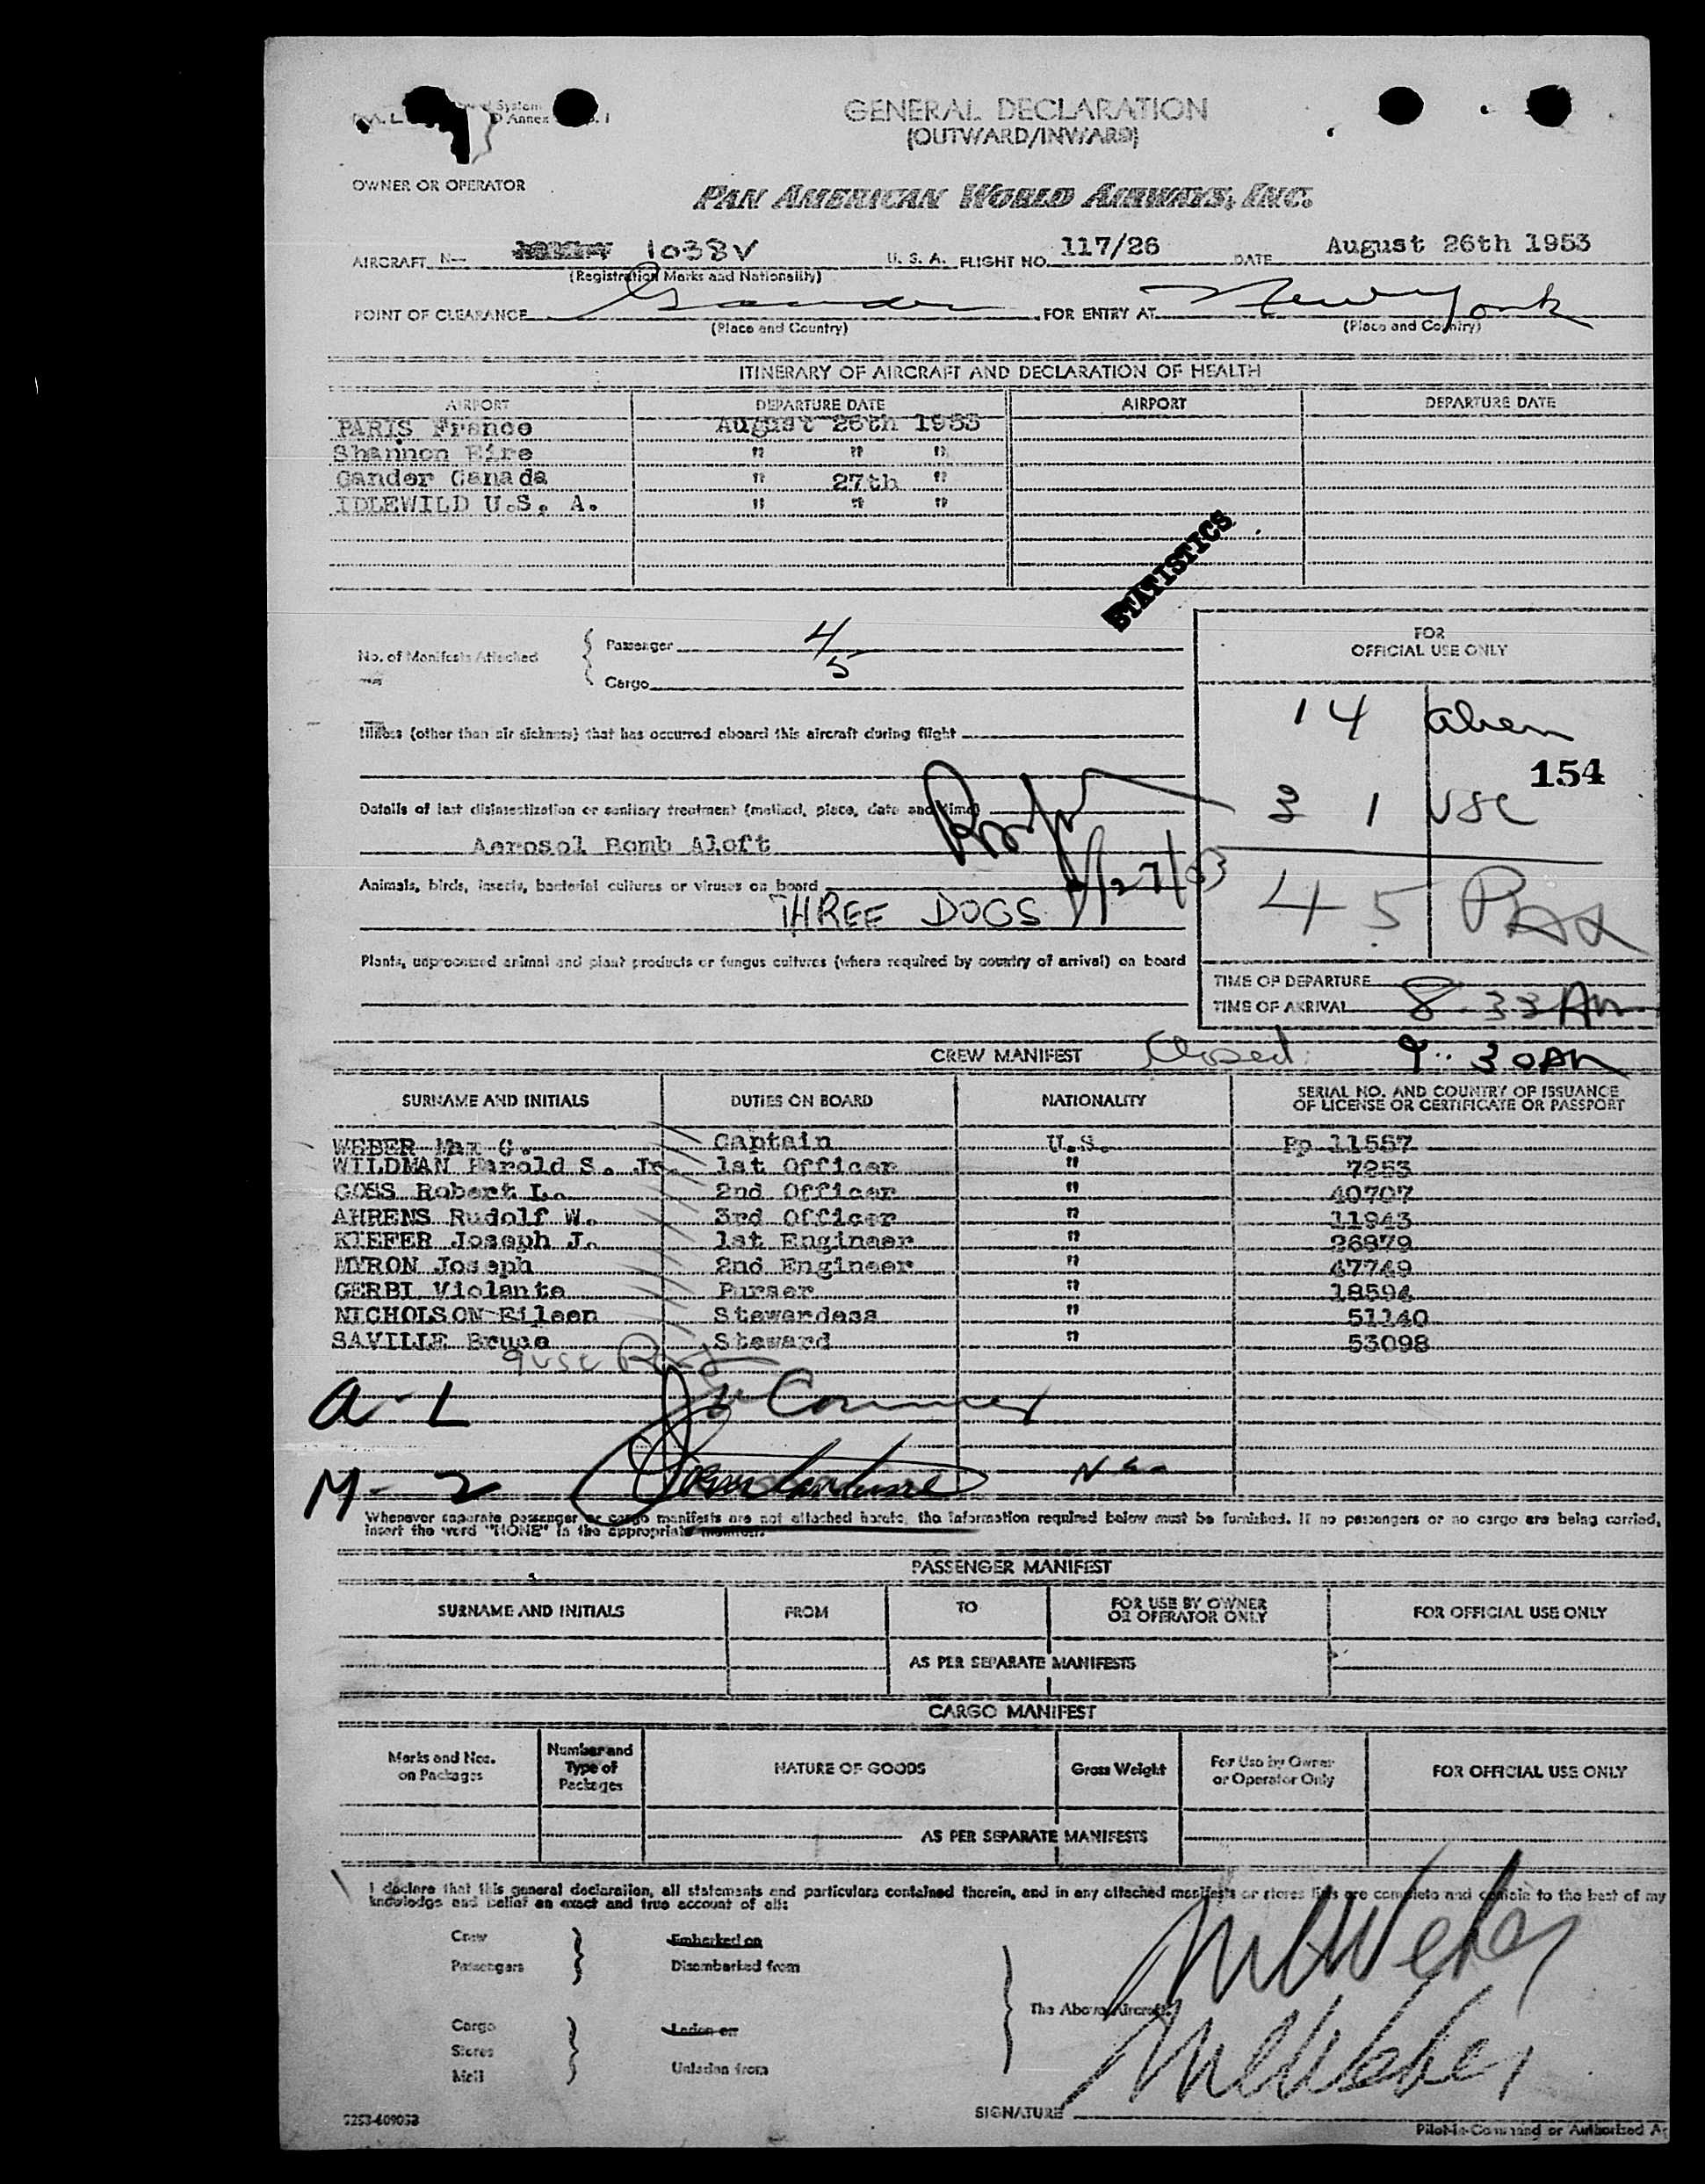 GENERAL DECLARATION
(OUTWARD/INWARD)
OWNER OR OPERATOR
PAN AMERICAN WORLD AIRWAYS, INC.
AIRCRAFT N- 1038V U. S. A. FLIGHT NO. 117/26 DATE August 26th 1953
(Registration Marks and Nationality)
POINT OF CLEARANCE Gander FOR ENTRY AT New York
(Place and Country) (Place and Country)
ITINERARY OF AIRCRAFT AND DECLARATION OF HEALTH
AIRPORT DEPARTURE DATE AIRPORT DEPARTURE DATE
PARIS France August 26th 1953
Shannon Eire " " "
Gander Canada " 27th "
IDLEWILD U.S. A. " " "
STATISTICS
No. of Manifests Attached
Passenger 4
Cargo 5
FOR
OFFICIAL USE ONLY
14 alien
Illness (other than air sickness) that has occurred aboard this aircraft during flight
154
31 USC
Details of last disinsectization or sanitary treatment (method, place, date and time)
Aerosol Bomb Aloft
8/27/53
45 Pax
Animals, birds, insects, bacterial cultures or viruses on board
THREE DOGS
Plants, unprocessed animal and plant products or fungus cultures (where required by country of arrival) on board
TIME OF DEPARTURE
TIME OF ARRIVAL 8-33 AM
CREW MANIFEST Closed: 9:30 AM
SURNAME AND INITIALS DUTIES ON BOARD NATIONALITY SERIAL NO. AND COUNTRY OF ISSUANCE
OF LICENSE OR CERTIFICATE OR PASSPORT
WEBER Max G. Captain U.S. Pp 11557
WILDMAN Harold S. Jr. 1st Officer " 7253
GOSS Robert L. 2nd Officer " 40707
AHRENS Rudolf W. 3rd Officer " 11943
KIEFER Joseph J. 1st Engineer " 26879
MYRON Joseph 2nd Engineer " 47749
GERBI Violante Purser " 18594
NICHOLSON Eileen Stewardess " 51140
SAVILLE Bruce Steward " 53098
9 USC
A-L
M-2
Whenever separate passenger or cargo manifests are not attached hereto, the information required below must be furnished. If no passengers or no cargo are being carried,
insert the word "NONE" in the appropriate manifest.
PASSENGER MANIFEST
SURNAME AND INITIALS FROM TO FOR USE BY OWNER
OR OPERATOR ONLY FOR OFFICIAL USE ONLY
AS PER SEPARATE MANIFESTS
CARGO MANIFEST
Marks and Nos.
on Packages
Number and
Type of
Packages
NATURE OF GOODS
Gross Weight
For Use by Owner
or Operator Only
FOR OFFICIAL USE ONLY
AS PER SEPARATE MANIFESTS
I declare that this general declaration, all statements and particulars contained therein, and in any attached manifests or stores lists are complete and contain to the best of my
knowledge and belief an exact and true account of all:
Crew Embarked on
Passengers Disembarked from
The Above Aircraft.
Cargo Laden on
Stores
Mail Unladen from
SIGNATURE
Pilot-in-Command or Authorized